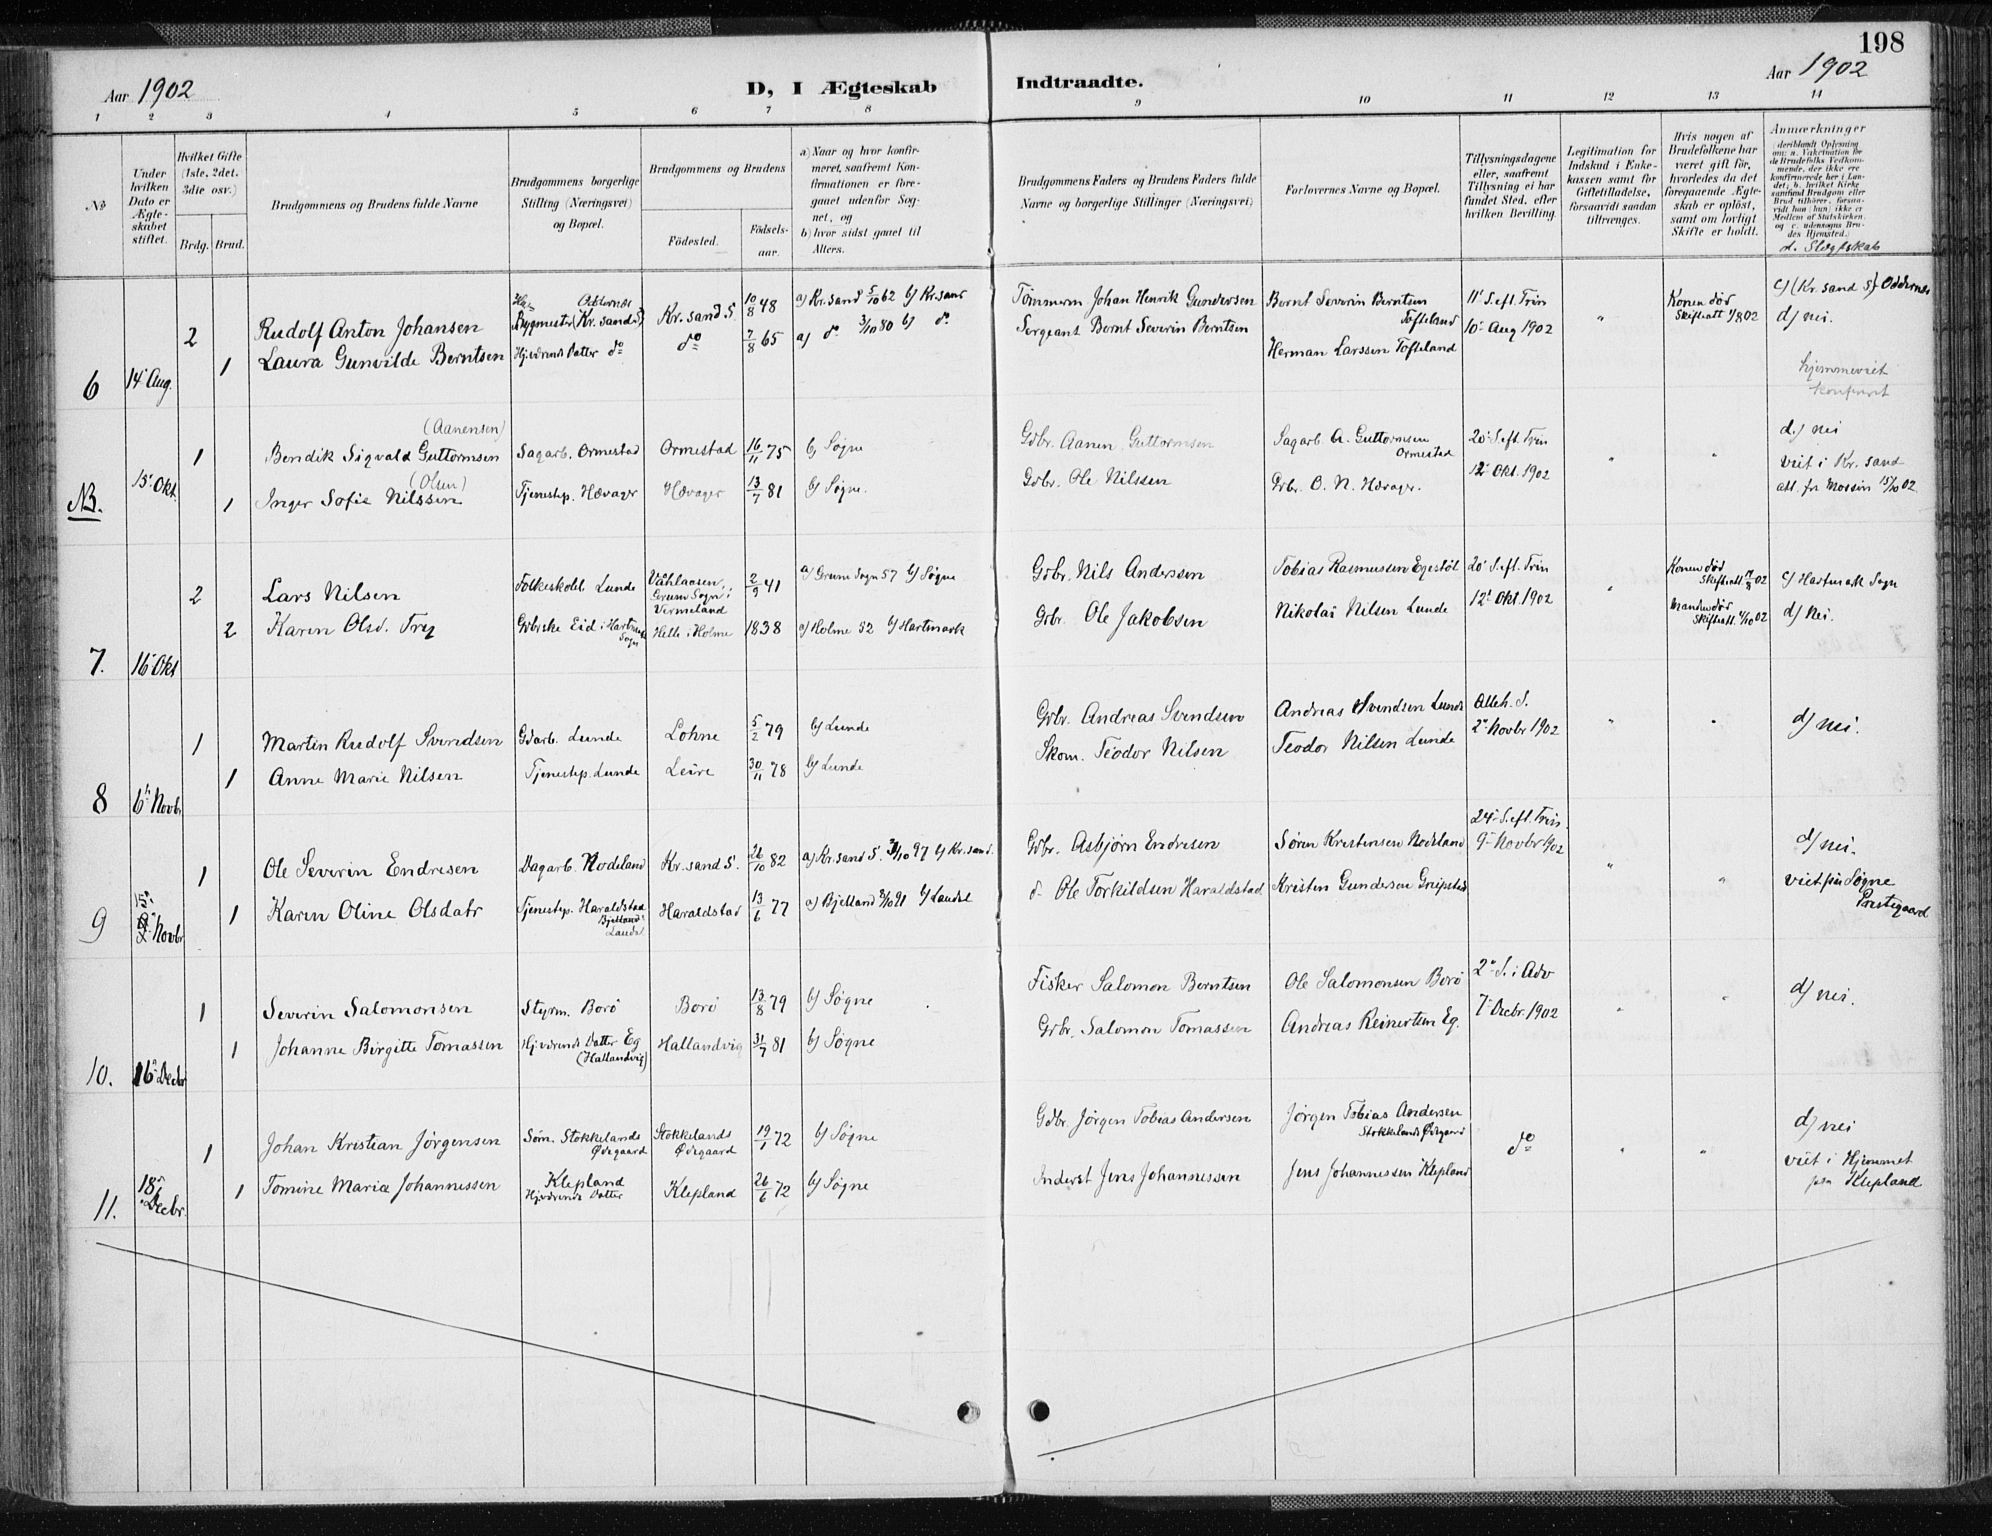 198
Aar 1902
D, I Ægteskab Indtraadte.
Aar 1902
1 2 3 4 5 6 7 8 9 10 11 12 13 14
No
Under hvilken Dato er Ægteskabet stiftet.
Hvilket Gifte (1ste, 2det, 3die osv.)
Brdg. Brud.
Brudgommens og Brudens fulde Navne
Brudgommens borgerlige Stilling (Næringsvei) og Bopæl.
Brudgommens og Brudens
Födested.
Födselsaar.
a) Naar og hvor konfirmeret, saafremt Konfirmationen er foregaaet udenfor Sognet, og
b) hvor sidst gaaet til Alters.
Brudgommens Faders og Brudens Faders fulde Navne og borgerlige Stillinger (Næringsvei)
Forlovernes Navne og Bopæl.
Tillysningsdagene eller, saafremt Tillysning ei har fundet Sted, efter hvilken Bevilling.
Legitimation for Indskud i Enkekassen samt for Giftetilladelse, forsaavidt saadan tiltrænges.
Hvis nogen af Brudefolkene har været gift för, hvorledes da det foregaaende Ægteskab er oplöst, samt om lovligt Skifte er holdt.
Anmærkninger
(deriblandt Oplysning om: a. Vakcination for de Brudefolks Vedkommende, der ikke ere konfirmerede her i Landet; b. hvilket Kirkesamfund Brudgom eller Brud tilhörer, forsaavidt han (hun) ikke er Medlem af Statskirken, og c. udensogns Brudes Hjemsted.)
d. Slægtskab
6 14 Aug. 2 Rudolf Anton Johansen Bygmester (Kr. sand S) Oddernes Kr. sand S. 10/8 48 a) Kr. sand 5/10 62 b) Kr. sand Tømmerm Johan Henrik Gundersen Bernt Severin Berntsen Tofteland 11' S. eft. Trin Konen død Skifteatt 1/8 02 c) (Kr. sand S) Oddernes
1 Laura Gunvilde Berntsen Hjeværende Datter do do 7/8 65 a) do 3/10 80 b) do Sergeant Bernt Severin Berntsen Herman Larssen Tofteland 10' Aug 1902 d) nei.
hjemmeviet
konfirert
NB. 15' Okt. 1 Bendik Sigvald Guttormsen (Aanensen) Sagarb. Ormestad Ormestad 16/11 75 b) Søgne Gdbr. Aanen Guttormsen Sagarb A. Guttormsen Ormestad 20' S. eft. Trin d.) nei
1 Inger Sofie Nilssen (Olsen) Tjenestep. Hævager Hævager 13/7 81 b) Søgne. Gdbr. Ole Nilssen Gdbr. O. N. Hævager. 12' Okt. 1902 viet i Kr. sand
att. fr Mossin 15/10 02
7. 16' Okt 2 Lars Nilsen Folkeskolel. Lunde Våhlaasen, Grums Sogn i Vermeland 2/9 41 a) Grums Sogn 57 b) Søgne Gdbr. Nils Anderssen Tobias Rasmussen Egestøl 20' S. eft. Trin Konen død Skifteatt. 02 c) Hartmark Sogn
2 Karen Olsd. Try Gdbrske Eid i Hartmark Sogn Helle i Holme 1838 a) Holme 52 b) Hartmark Gdbr. Ole Jakobsen Nikolai Nilsen Lunde 12' Okt. 1902 Manden død Skifteatt. 4/10 02 d) Nei.
8 6' Novbr 1 Martin Rudolf Svendsen Gdarb. Lunde Lohne 5/2 79 b) Lunde Gdbr. Andreas Svendsen Andreas Svendsen Lunde Alleh. S. d) nei.
1 Anne Marie Nilsen Tjenestep. Lunde Leire 30/11 78 b) Lunde Skom. Teodor Nilsen Teodor Nilsen Lunde 2' Novbr 1902
9 Novbr 1 Ole Severin Endresen Dagarb. Nodeland Kr. sand S. 26/10 82 a) Kr. sand S. 97 b) Kr. sand. Gdbr. Asbjørn Endresen Søren Kristensen Nodeland 24' S. eft. Trin. 9' Novbr 1902 d) nei.
1 Karen Oline Olsdatr Tjenestep. Haraldstad Bjelland Laudal Haraldstad 13/6 77 a) Bjelland 91 b) Laudal Ole Torkildsen Haraldstad Kristen Gundersen viet paa Søgne Prestegaard
10. 16' Decbr 1 Severin Salomonsen Styrm. Borø Borø 13/8 79 b) Søgne Fisker Salomon Berntsen Ole Salomonsen Borø 2' S. i Adv d) nei.
1 Johanne Birgitte Tomassen Hjeværende Datter Eg (Hallandvig) Hallandvig 31/7 81 b) Søgne Gdbr. Salomon Tomassen Andreas Reinertsen Eg. 7' Decbr. 1902
11. 18' Decbr. 1 Johan Kristian Jørgensen Søm. Stokkelands Ødegaard Stokkelands Ødegaard 19/1 72 b) Søgne Gdbr Jørgen Tobias Andersen Jørgen Tobias Andersen Stokkelands Ødegaard do d) nei
1 Tomine Marie Johannessen Klepland Hjeværende Datter Klepland 26/6 72 b) Søgne Inderst Jens Johannessen Jens Johannessen Klepland viet i Hjemmet paa Klepland